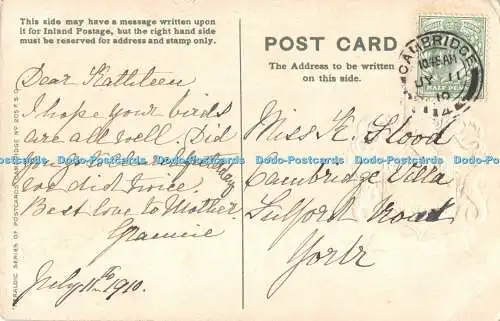 This side may have a message written upon
it for Inland Postage, but the right hand side
must be reserved for address and stamp only.
POST CARD
The Address to be written
on this side.
CAMBRIDGE
10.45 AM
JY 11
10
HALF PENNY
Dear Kathleen
I hope your birds
are all well. Did
you go to the
yesterday
we did twice.
Best love to Mother
Grannie
July 11th 1910.
Miss K. Flood
Cambridge Villa
Fulford Road
York
HERALDIC SERIES OF POSTCARDS, CAMBRIDGE
Dodo-Postcards Dodo-Postcards Dodo-Postcards Dodo-Postcards Dodo-Postcards